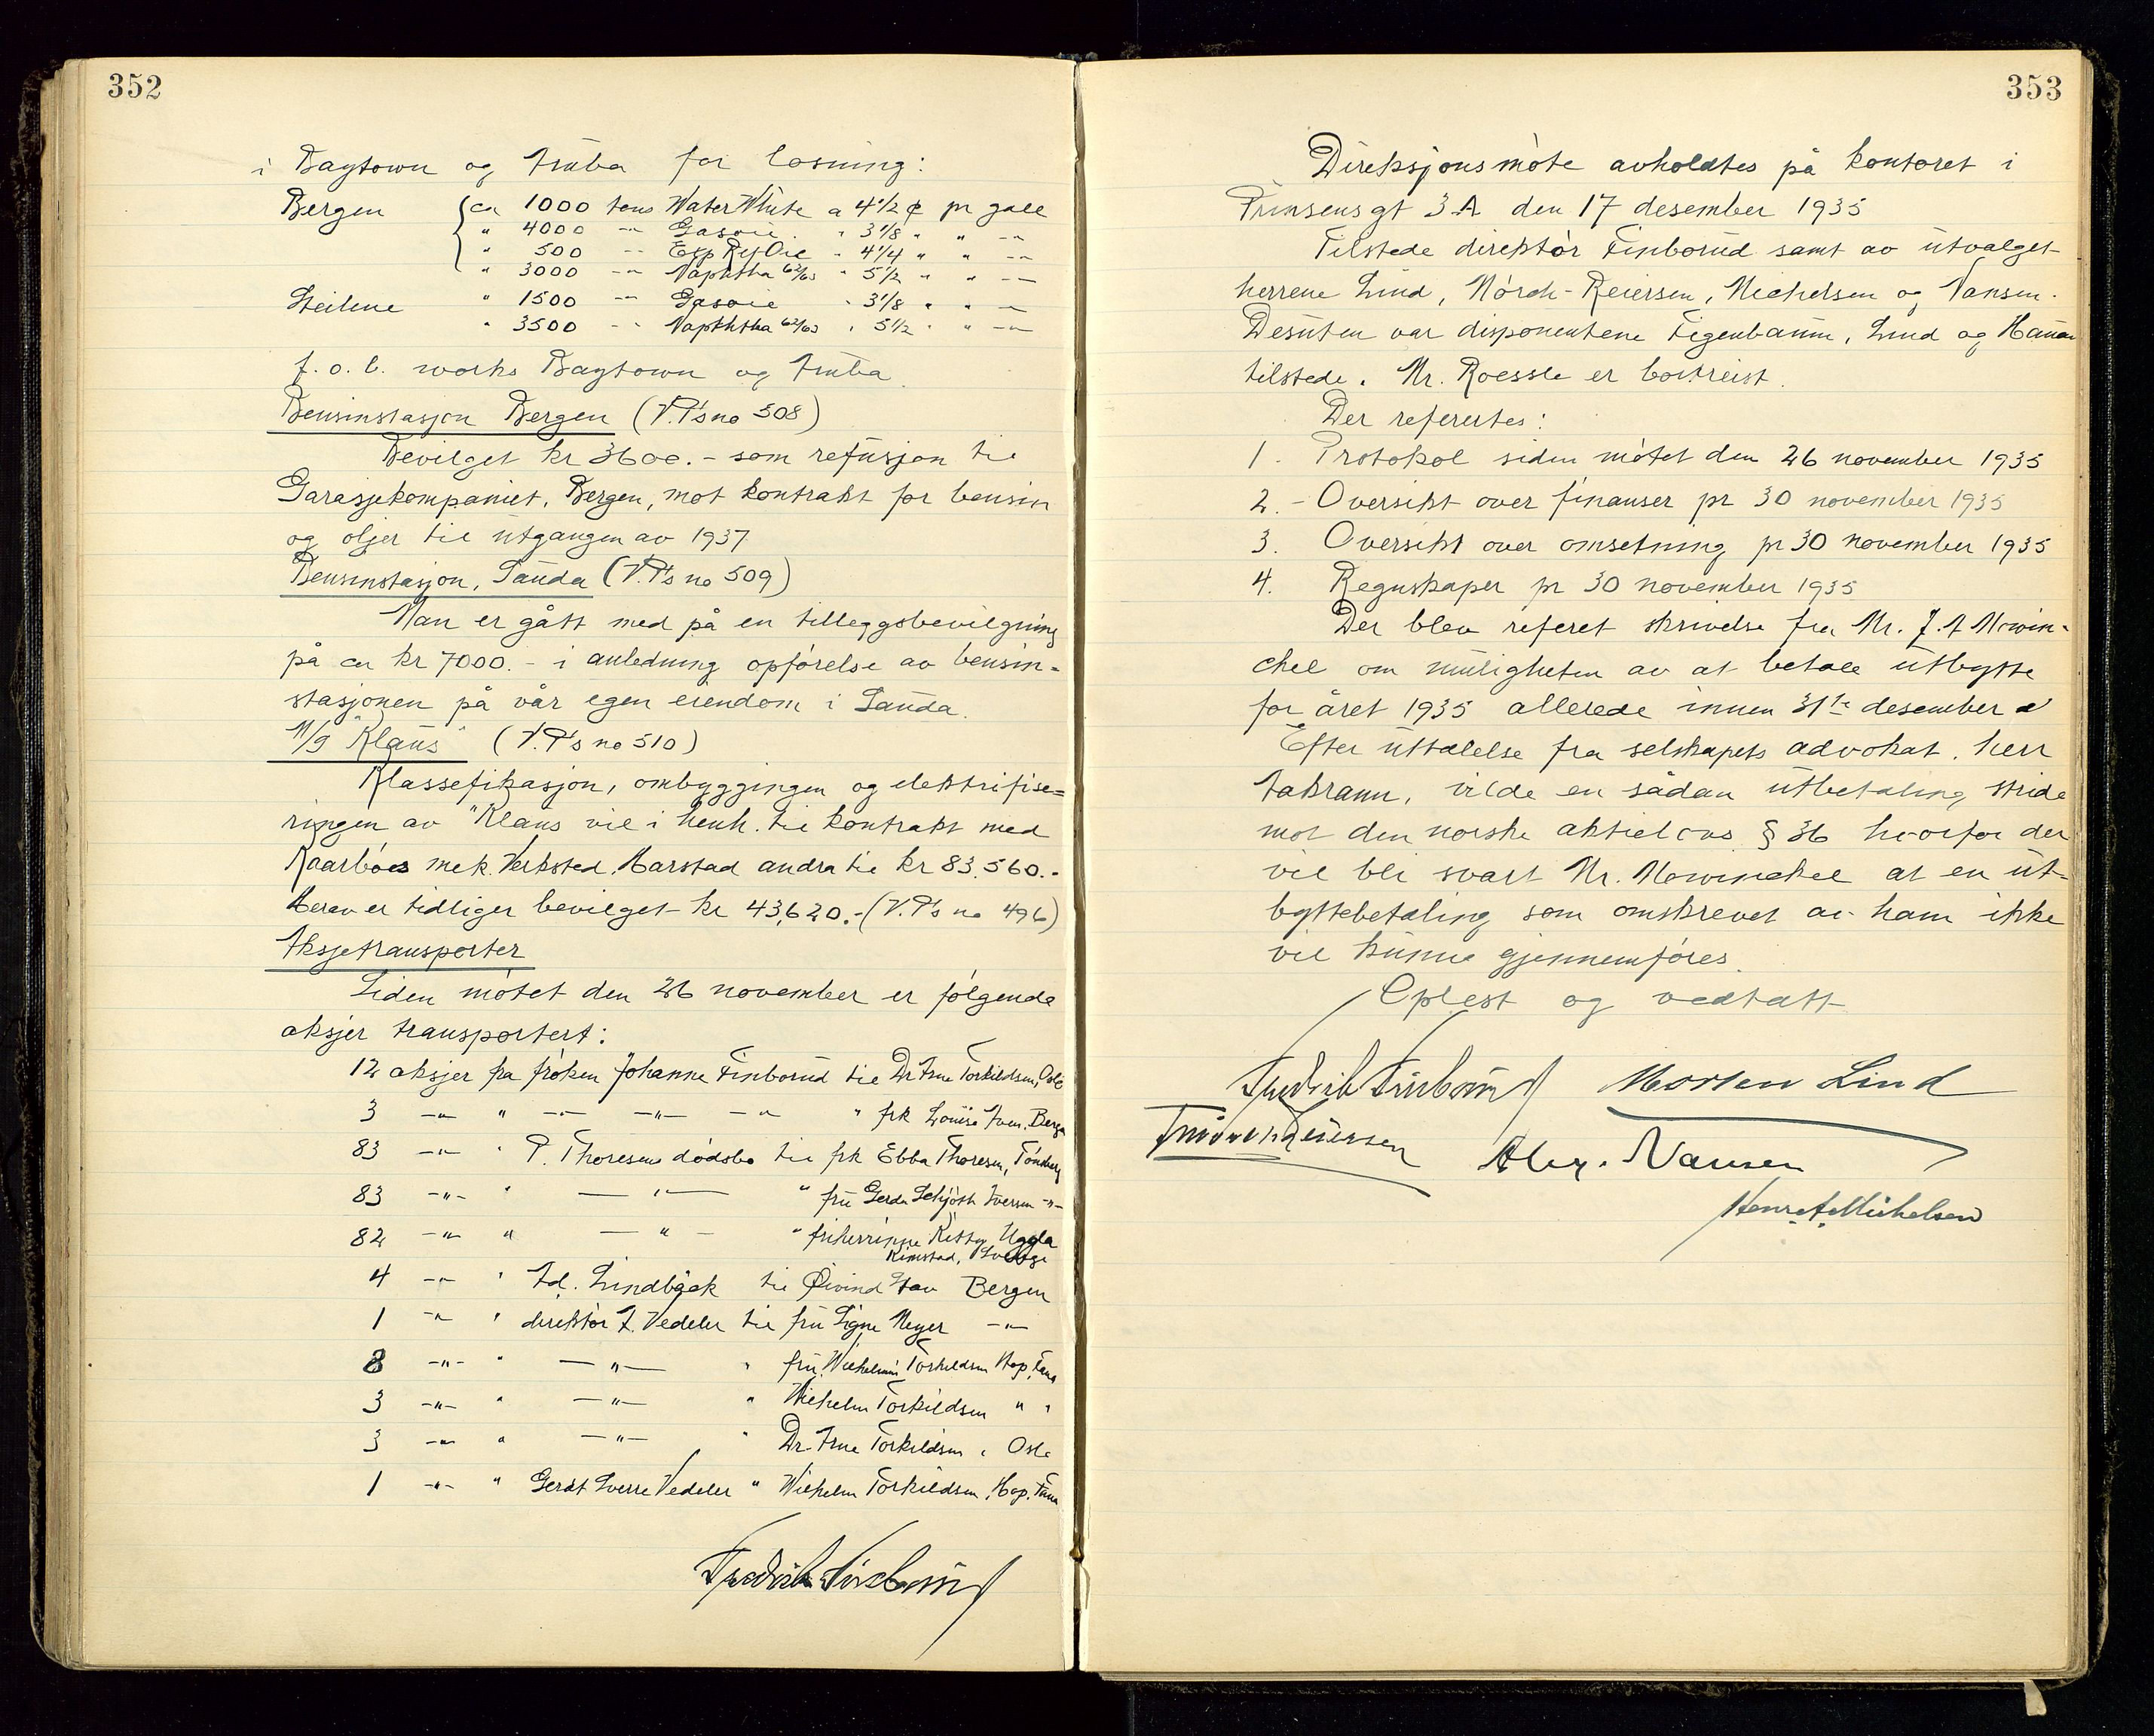 352
i Baytown og Aruba for losning:
Bergen { ca 1000 tons Water White a 4 1/2 ¢ pr gall
" 4000 -"- Gasoil " 3 1/8 " " -"-
" 500 -"- Exp Ref Oil " 4 1/4 " " -"-
" 3000 -"- Naphtha 62/63 " 5 1/2 " " -"-
Steilene " 1500 -"- Gasoil " 3 1/8 " " -"-
" 3500 -"- Naphtha 62/63 " 5 1/2 " " -"-
f.o.b. works Baytown og Aruba.
Bensinstasjon Bergen (V.P.'s no 508)
Bevilget kr 3600.- som refusjon til
Garasjekompaniet, Bergen, mot kontrakt for bensin
og oljer til utgangen av 1937
Bensinstasjon, Sauda (V.P.'s no 509)
Man er gått med på en tilleggsbevilgning
på ca kr 7000.- i anledning opførelse av bensin=
stasjonen på vår egen eiendom i Sauda.
M/S "Klaus" (V.P.'s no 510)
Klassefikasjon, ombyggingen og elektrifise=
ringen av "Klaus vil i henh. til kontrakt med
Kaarbøs mek. Verksted, Harstad andra til kr 83.560.-
Herav er tidliger bevilget kr 43,620.- (V.P.'s no 496)
Aksjetransporter
Siden møtet den 26 november er følgende
aksjer transportert:
12 aksjer fra frøken Johanne Finborud til Dr Arne Torkildsen, Oslo
3 -"- " -"- -"- -"- " frk Louise Iven, Bergen
83 -"- " P. Thoresens dødsbo til frk Ebba Thoresen, Tønsberg
83 -"- " -"- " fru Gerda Schjøth Iversen -"-
82 -"- " -"- " friherrinne Kitty Uggla
Kimstad, Sverige
4 -"- " Ad. Lindbäck til Øivind Stav Bergen
1 -"- " direktør J. Vedeler til fru Signe Meyer -"-
8 -"- " -"- " fru Wilhelmine Torkildsen Hop, Fana
3 -"- " -"- " Wilhelm Torkildsen " "
3 -"- " -"- " Dr. Arne Torkildsen, Oslo
1 -"- " Gerdt Sverre Vedeler " Wilhelm Torkildsen, Hop, Fana
Fredrik Finborud
353
Direksjonsmøte avholdtes på kontoret i
Prinsensgt 3A den 17 desember 1935
Tilstede direktør Finborud samt av utvalget
herrene Lind, Mørch-Reiersen, Michelsen og Nansen.
Desuten var disponentene Feigenbaum, Lind og Hanson
tilstede. Mr. Roessle er bortreist.
Der refertes:
1. Protokol siden møtet den 26 november 1935
2. - Oversikt over finanser pr 30 november 1935
3. Oversikt over omsetning pr 30 november 1935
4. Regnskaper pr 30 november 1935
Der blev referet skrivelse fra Mr. J. A Mowin-
chel om muligheten av at betale utbytte
for året 1935 allerede innen 31te desember
Efter uttalelse fra selskapets advokat, herr
Takrann, vilde en sådan utbetaling stride
mot den norske aktielovs § 36 hvorfor der
vil bli svart Mr. Mowinckel at en ut-
byttebetaling som omskrevet av ham ikke
vil kunne gjennemføres.
Oplest og vedtatt
Fredrik Finborud Morten Lind
F Mørch Reiersen Alex. Nansen
Henr. A. Michelsen